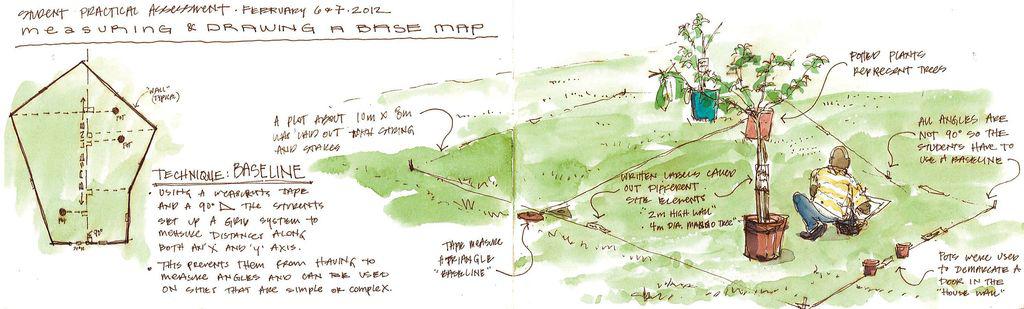 STUDENT PRACTICAL ASSESSMENT · FEBRUARY 6 & 7 · 2012
MEASURING & DRAWING A BASE MAP
"WALL"
(TYPICAL)
POT
POT
POT
90°
TECHNIQUE: BASELINE
USING A MEASURING TAPE
AND A 90° THE STUDENTS
SET UP A GRID SYSTEM TO
MEASURE DISTANCES ALONG
BOTH AN 'X' AND 'Y' AXIS.
• THIS PREVENTS THEM FROM HAVING TO
MEASURE ANGLES AND CAN BE USED
ON SITES THAT ARE SIMPLE OR COMPLEX.
A PLOT ABOUT 10m x 8m
WAS LAID OUT WITH STRING
AND STAKES
TAPE MEASURE
& TRIANGLE
"BASELINE"
WRITTEN LABELS CALLED
OUT DIFFERENT
SITE ELEMENTS
"2m HIGH WALL"
"4m DIA. MANGO TREE"
POTTED PLANTS
REPRESENT TREES
ALL ANGLES ARE
NOT 90° SO THE
STUDENTS HAVE TO
USE A BASELINE
POTS WERE USED
TO DEMARCATE A
DOOR IN THE
"HOUSE WALL"